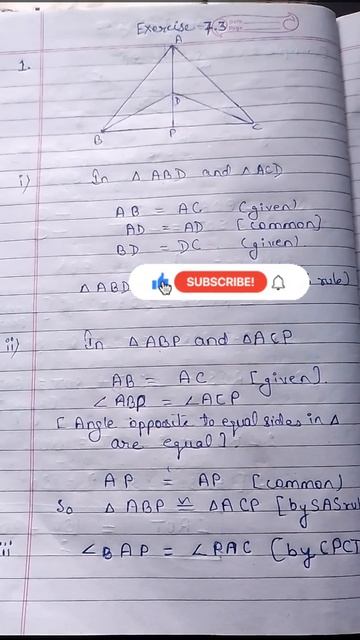 Exercise - 7.3
1.
A
D
B P C
i) In △ ABD and △ ACD
AB = AC (given)
AD = AD [common]
BD = DC (given)
△ ABD rule)
SUBSCRIBE!
ii) In △ ABP and △ ACP
AB = AC [given].
∠ ABP = ∠ ACP
[Angle opposite to equal sides in △
are equal].
AP = AP [common)
So △ ABP ≅ △ ACP [by SAS rul
iii ∠BAP = ∠PAC [by CPCT